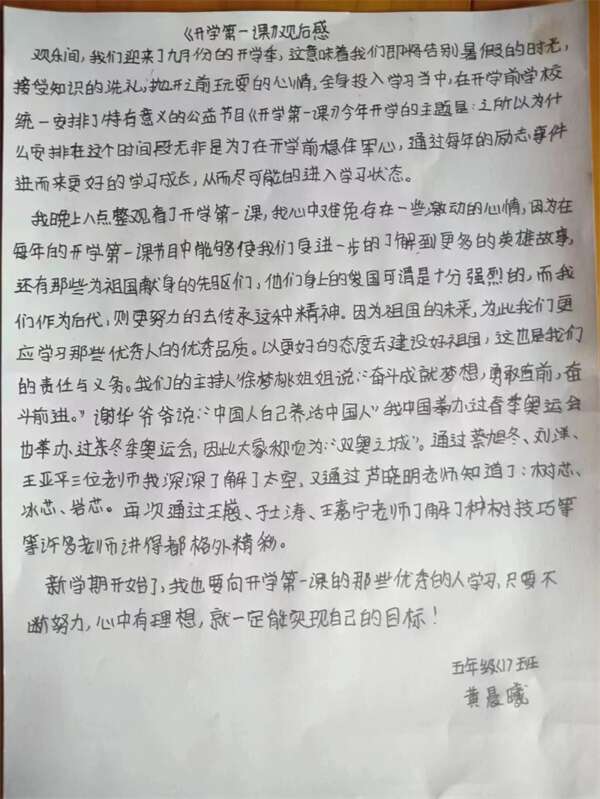 《开学第一课》观后感
观乐间，我们迎来了九月份的开学季，这意味着我们即将告别暑假的时光，
接受知识的洗礼，抛开之前玩耍的心情，全身投入学习当中，在开学前学校
统一安排了特有意义的公益节目《开学第一课》今年开学的主题是：之所以为什
么安排在这个时间段无非是为了在开学前稳住军心，通过每年的励志事件
进而来更好的学习成长，从而尽可能的进入学习状态。
我晚上八点整观看了开学第一课，我心中难免存在一些激动的心情，因为在
每年的开学第一课节目中能够使我们良进一步的了解到更多的英雄故事，
还有那些为祖国献身的先驱们，他们身上的爱国可谓是十分强烈的，而我
们作为后代，则要努力的去传承这种精神。因为祖国的未来，为此我们更
应学习那些优秀人的优秀品质。以更好的态度去建设好祖国，这也是我们
的责任与义务。我们的主持人“徐梦桃姐姐说：“奋斗成就梦想，勇敢直前，奋
斗前进。”谢华爷爷说：“中国人自己养活中国人”我中国举办过春季奥运会
也举办过冬季奥运会，因此大家称为：“双奥之城”。通过蔡旭冬、刘洋、
王亚平三位老师我深深了解了太空，又通过芦晓明老师知道了：树芯、
冰芯、岩芯。再次通过王、于士涛、王嘉宁老师了解了种树技巧等
等许多老师讲得都格外精彩。
新学期开始了，我也要向开学第一课的那些优秀的人学习，只要不
断努力，心中有理想，就一定能实现自己的目标！
五年级（17）班
黄晨曦